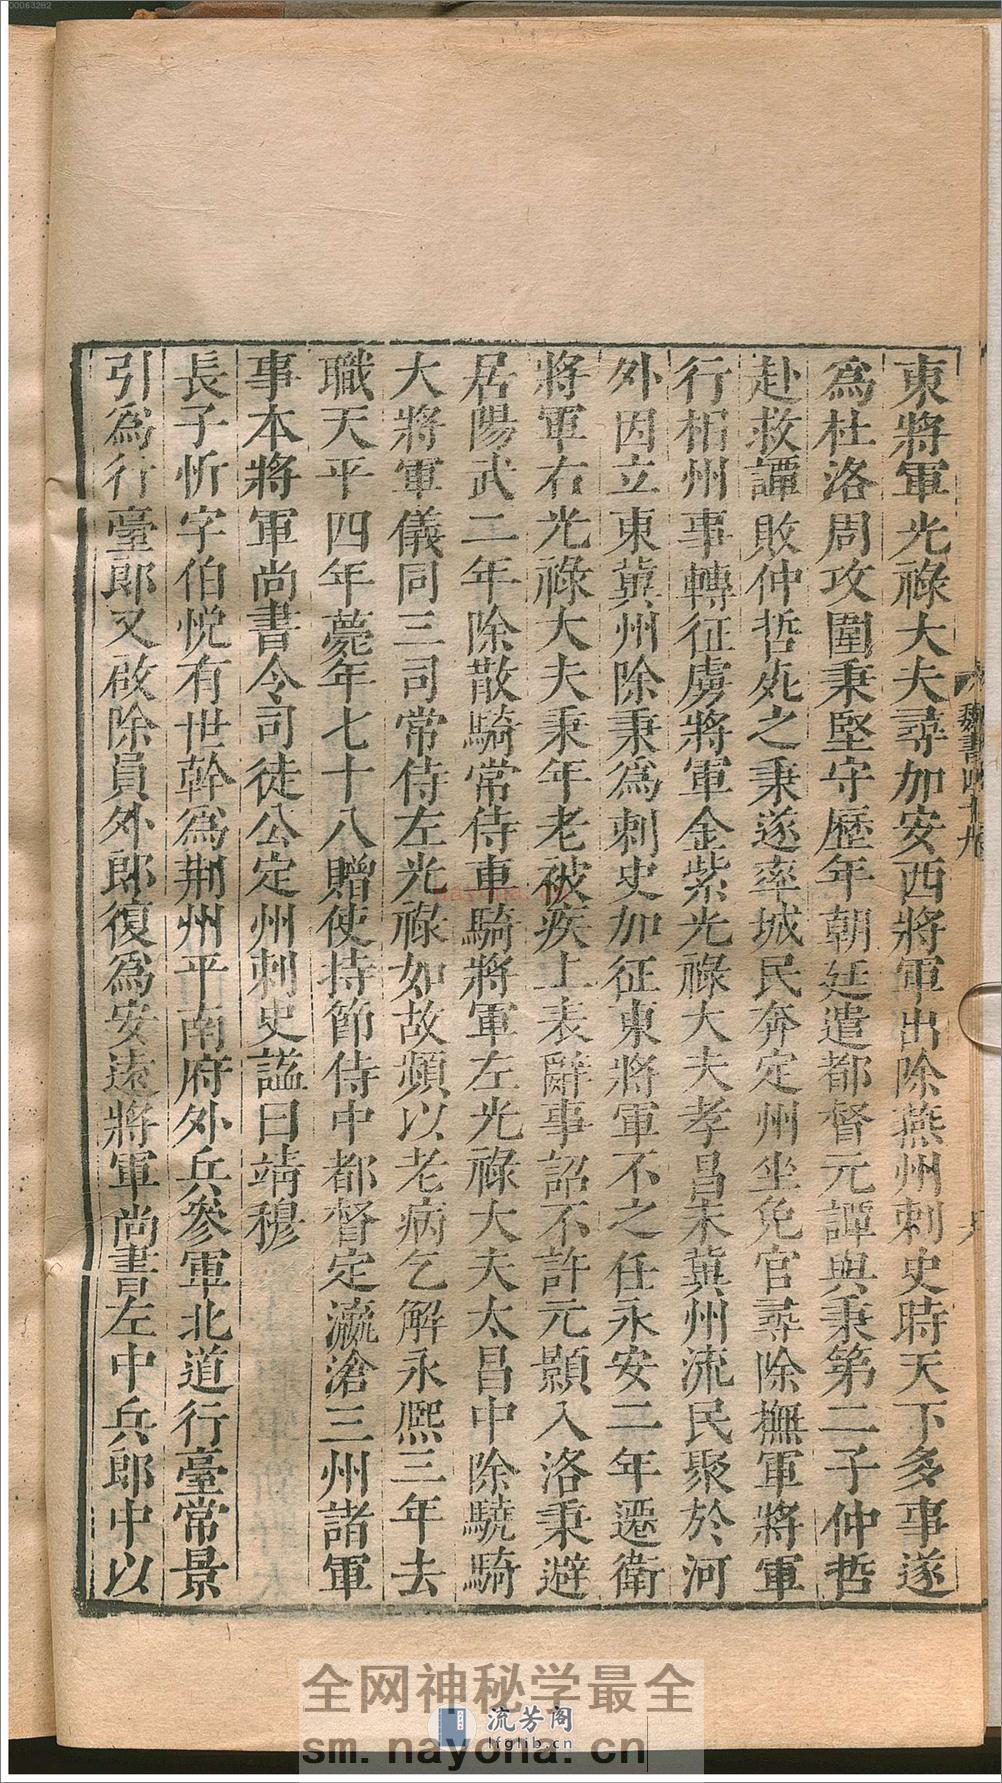 00063282
東將軍光祿大夫尋加安西將軍出除燕州刺史時天下多事遂
爲杜洛周攻圍秉堅守歷年朝廷遣都督元譚與秉第二子仲哲
赴救譚敗仲哲死之秉遂率城民奔定州坐免官尋除撫軍將軍
行相州事轉征虜將軍金紫光祿大夫孝昌末冀州流民聚於河
外因立東冀州除秉爲刺史加征東將軍不之任永安二年遷衛
將軍右光祿大夫秉年老被疾上表辭事詔不許元顥入洛秉避
居陽武二年除散騎常侍車騎將軍左光祿大夫太昌中除驍騎
大將軍儀同三司常侍左光祿如故頻以老病乞解永熙三年去
職天平四年薨年七十八贈使持節侍中都督定瀛滄三州諸軍
事本將軍尚書令司徒公定州刺史諡曰靖穆
長子忻字伯悅有世幹爲荆州平南府外兵參軍北道行臺常景
引爲行臺郎又啟除員外郎復爲安遠將軍尚書左中兵郎中以
魏書四十九
全网神秘学最全
流芳阁
lfglib.cn
sm.nayona.cn